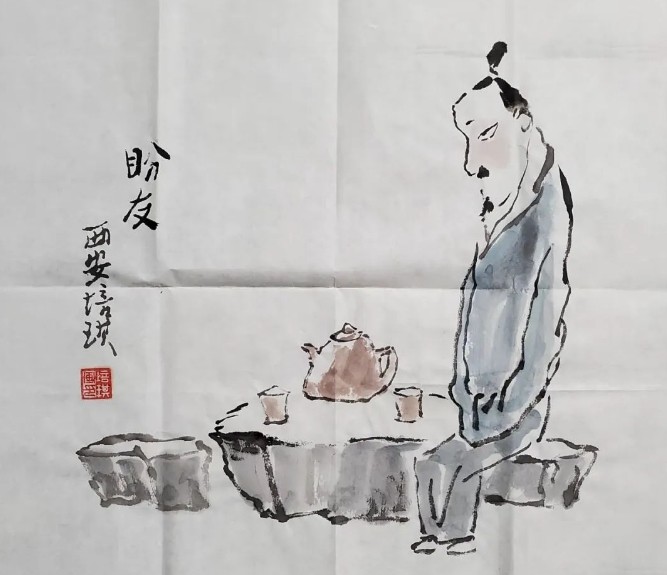 盼友
西安培琪
培琪